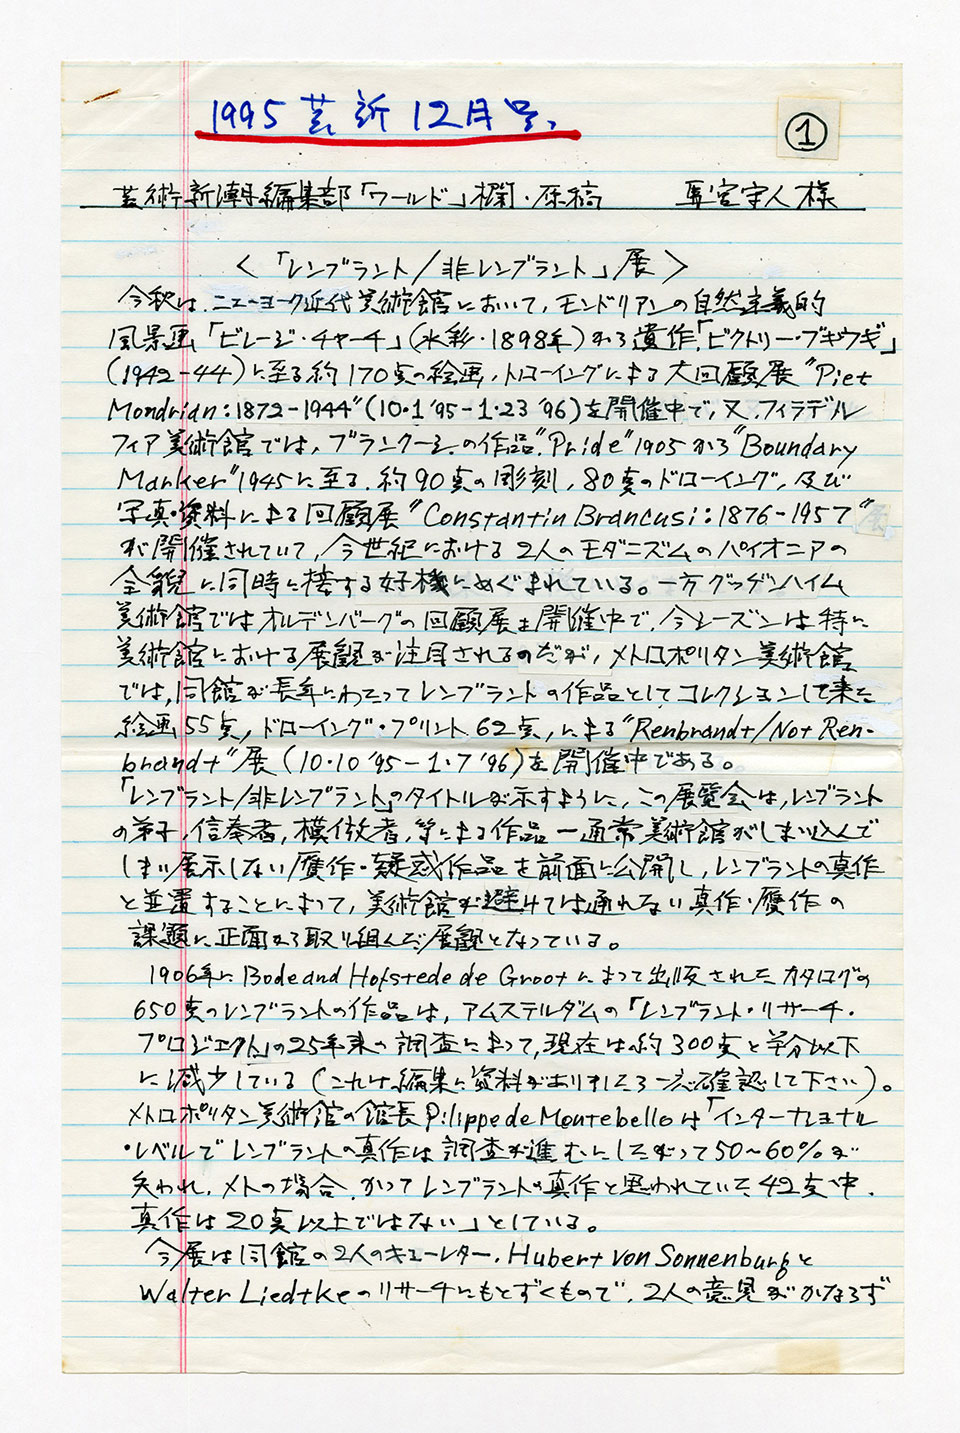 1995 芸新 12月号、
①
芸術新潮編集部「ワールド」欄・原稿 馬宮守人様
<「レンブラント/非レンブラント」展>
今秋は、ニューヨーク近代美術館において、モンドリアンの自然主義的
風景画「ビレージ・チャーチ」(水彩・1898年)から遺作「ビクトリー・ブギウギ」
(1942-44)に至る約170点の絵画、ドローイングによる大回顧展"Piet
Mondrian:1872-1944"(10・1'95-1・23'96)を開催中で、又、フィラデル
フィア美術館では、ブランクーシの作品"Pride"1905から"Boundary
Marker"1945に至る、約90点の彫刻、80点のドローイング、及び
写真・資料による回顧展"Constantin Brancusi:1876-1957"展
が開催されていて、今世紀における2人のモダニズムのパイオニアの
全貌に同時に接する好機にめぐまれている。一方グッゲンハイム
美術館ではオルデンバーグの回顧展を開催中で、今シーズンは特に
美術館における展観が注目されるのだが、メトロポリタン美術館
では、同館が長年にわたってレンブラントの作品としてコレクションして来た
絵画55点、ドローイング・プリント62点、による"Renbrandt/Not Ren-
brandt"展(10・10'95-1・7'96)を開催中である。
「レンブラント/非レンブラント」のタイトルが示すように、この展覧会は、レンブラント
の弟子、信奉者、模倣者、等による作品一通常美術館がしまい込んで
しまい展示しない贋作・疑惑作品を前面に公開し、レンブラントの真作
と並置することによって、美術館が避けては通れない真作・贋作の
課題に正面から取り組んだ展観となっている。
1906年にBode and Hofstede de Grootによって出版されたカタログの
650点のレンブラントの作品は、アムステルダムの「レンブラント・リサーチ・
プロジェクト」の25年来の調査によって、現在は約300点と半分以下
に減少している(これは編集に資料がありましたら一応確認して下さい)。
メトロポリタン美術館の館長Pilippe de Montebelloは「インターナショナル
・レベルでレンブラントの真作は調査が進むにしたがって50~60%が
失われ、メトの場合、かつてレンブラントの真作と思われていた42点中、
真作は20点以上ではない」としている。
今展は同館の2人のキューレター、Hubert von Sonnenburgと
Walter Liedtkeのリサーチにもとずくもので、2人の意見がかならず